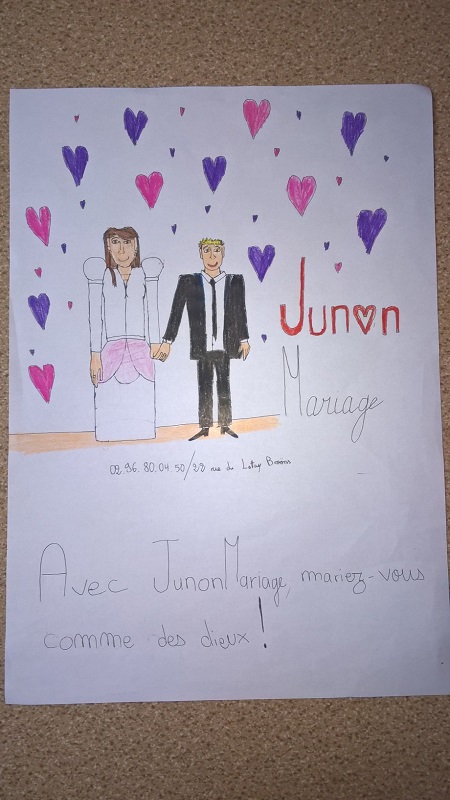 Junon
Mariage
02.96.80.04.50/22 rue du
Avec JunonMariage, mariez-vous
comme des dieux!